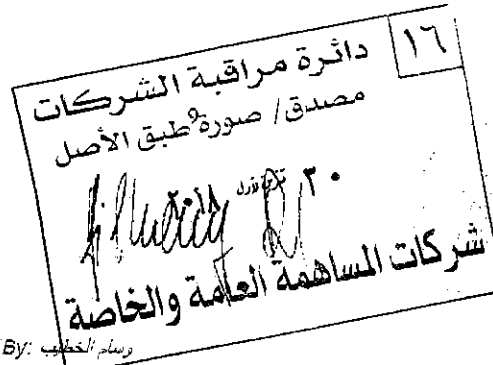 ١٦
دائرة مراقبة الشركات
مصدق / صورة طبق الأصل
٣٠ تشرين الأول
شركات المساهمة العامة والخاصة
By: وسام الخطيب